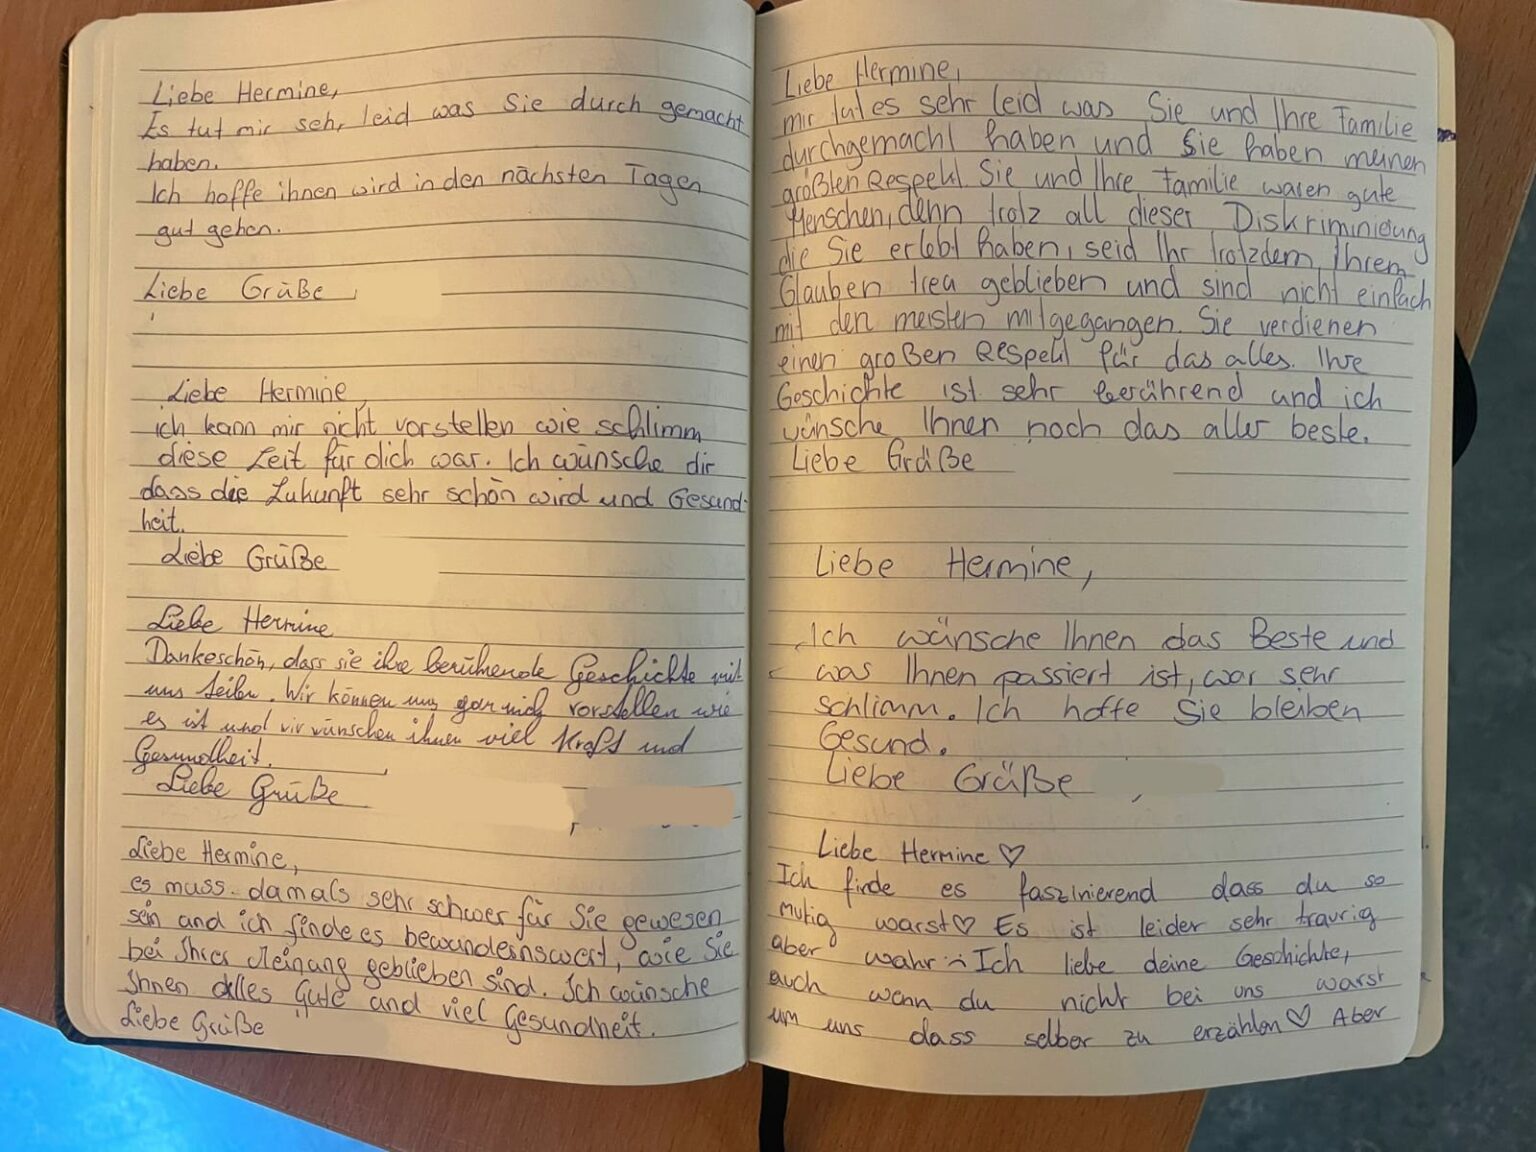 Liebe Hermine,
Es tut mir sehr leid was Sie durch gemacht
haben.
Ich hoffe ihnen wird in den nächsten Tagen
gut gehen.
Liebe Grüße
Liebe Hermine,
ich kann mir nicht vorstellen wie schlimm
diese Zeit für dich war. Ich wünsche dir
dass die Zukunft sehr schön wird und Gesund-
heit.
Liebe Grüße
Liebe Hermine
Dankeschön, dass sie ihre berührende Geschichte mit
uns teilen. Wir können uns gar nich vorstellen wie
es ist und wir wünschen ihnen viel Kraft und
Gesundheit.
Liebe Grüße
Liebe Hermine,
es muss damals sehr schwer für Sie gewesen
sein und ich finde es bewundernswert, wie Sie
bei Ihrer Meinung geblieben sind. Ich wünsche
Ihnen alles Gute und viel Gesundheit.
Liebe Grüße
Liebe Hermine,
mir tut es sehr leid was Sie und Ihre Familie
durchgemacht haben und Sie haben meinen
größten Respekt. Sie und Ihre Familie waren gute
Menschen, denn trotz all dieser Diskriminierung
die Sie erlebt haben, seid Ihr trotzdem Ihrem
Glauben treu geblieben und sind nicht einfach
mit den meisten mitgegangen. Sie verdienen
einen großen Respekt für das alles. Ihre
Geschichte ist sehr berührend und ich
wünsche Ihnen noch das aller beste.
Liebe Grüße
Liebe Hermine,
Ich wünsche Ihnen das Beste und
was Ihnen passiert ist, war sehr
schlimm. Ich hoffe Sie bleiben
Gesund.
Liebe Grüße
Liebe Hermine ♡
Ich finde es faszinierend dass du so
mutig warst ♡ Es ist leider sehr traurig
aber wahr :( Ich liebe deine Geschichte,
auch wenn du nicht bei uns warst
um uns dass selber zu erzählen ♡ Aber